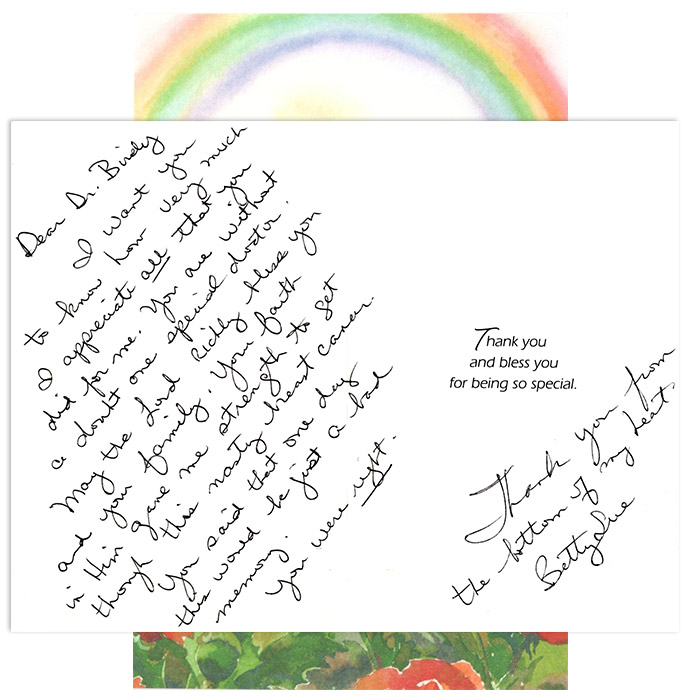 Dear Dr. Birdy
I want you
to know how very much
I appreciate all that you
did for me. You are without
a doubt one special doctor.
May the Lord Richly bless you
and your family. Your faith
in Him gave me strength to get
though this nasty breast cancer.
You said that one day
this would be just a bad
memory.
You were right.
Thank you
and bless you
for being so special.
Thank you from
the bottom of my heat.
Bettysue